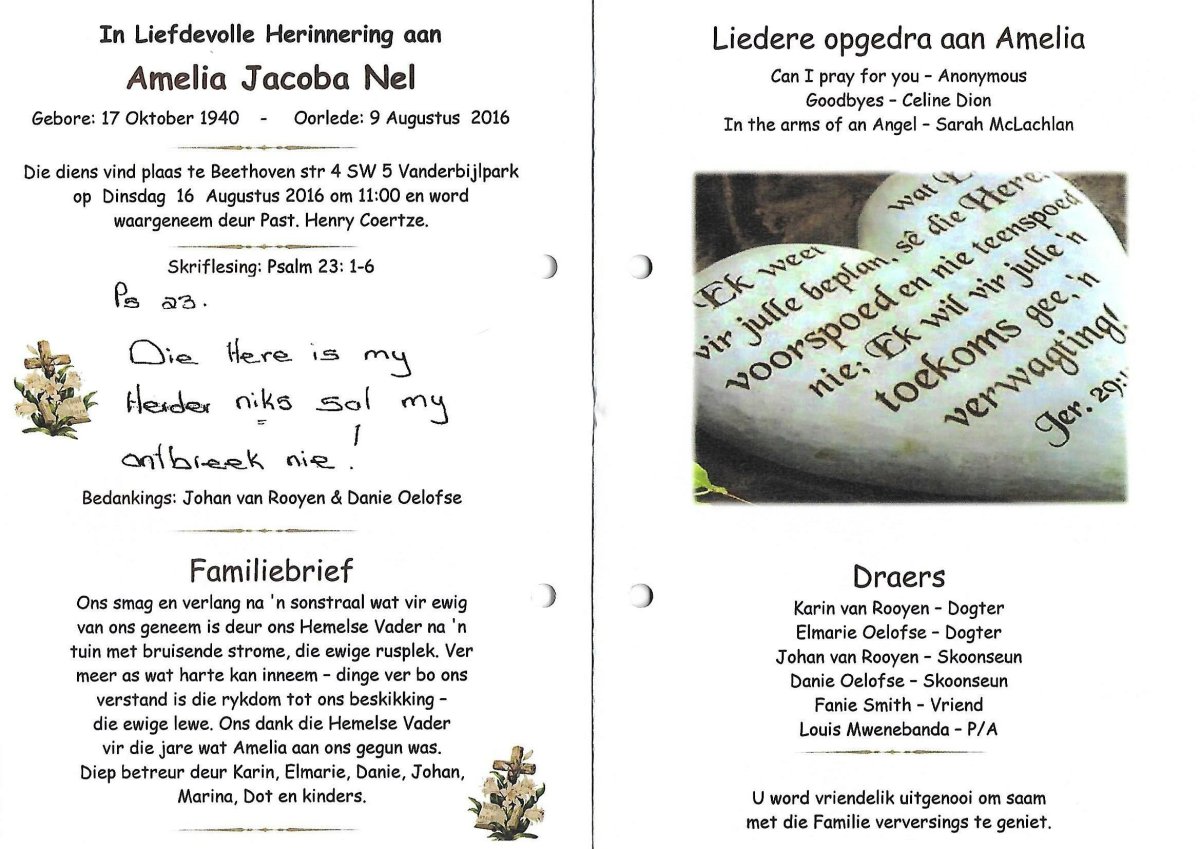 In Liefdevolle Herinnering aan
Amelia Jacoba Nel
Gebore: 17 Oktober 1940 - Oorlede: 9 Augustus 2016
Die diens vind plaas te Beethoven str 4 SW 5 Vanderbijlpark
op Dinsdag 16 Augustus 2016 om 11:00 en word
waargeneem deur Past. Henry Coertze.
Skriflesing: Psalm 23: 1-6
Ps 23.
Die Here is my
Herder niks sal my
ontbreek nie!
Bedankings: Johan van Rooyen & Danie Oelofse
Familiebrief
Ons smag en verlang na 'n sonstraal wat vir ewig
van ons geneem is deur ons Hemelse Vader na 'n
tuin met bruisende strome, die ewige rusplek. Ver
meer as wat harte kan inneem – dinge ver bo ons
verstand is die rykdom tot ons beskikking –
die ewige lewe. Ons dank die Hemelse Vader
vir die jare wat Amelia aan ons gegun was.
Diep betreur deur Karin, Elmarie, Danie, Johan,
Marina, Dot en kinders.
Liedere opgedra aan Amelia
Can I pray for you – Anonymous
Goodbyes – Celine Dion
In the arms of an Angel – Sarah McLachlan
wat
Ek weet
vir julle beplan, sê die Here:
voorspoed en nie teenspoed
nie; Ek wil vir julle 'n
toekoms gee, 'n
verwagting!
Jer. 29:
Draers
Karin van Rooyen – Dogter
Elmarie Oelofse – Dogter
Johan van Rooyen – Skoonseun
Danie Oelofse – Skoonseun
Fanie Smith – Vriend
Louis Mwenebanda – P/A
U word vriendelik uitgenooi om saam
met die Familie verversings te geniet.